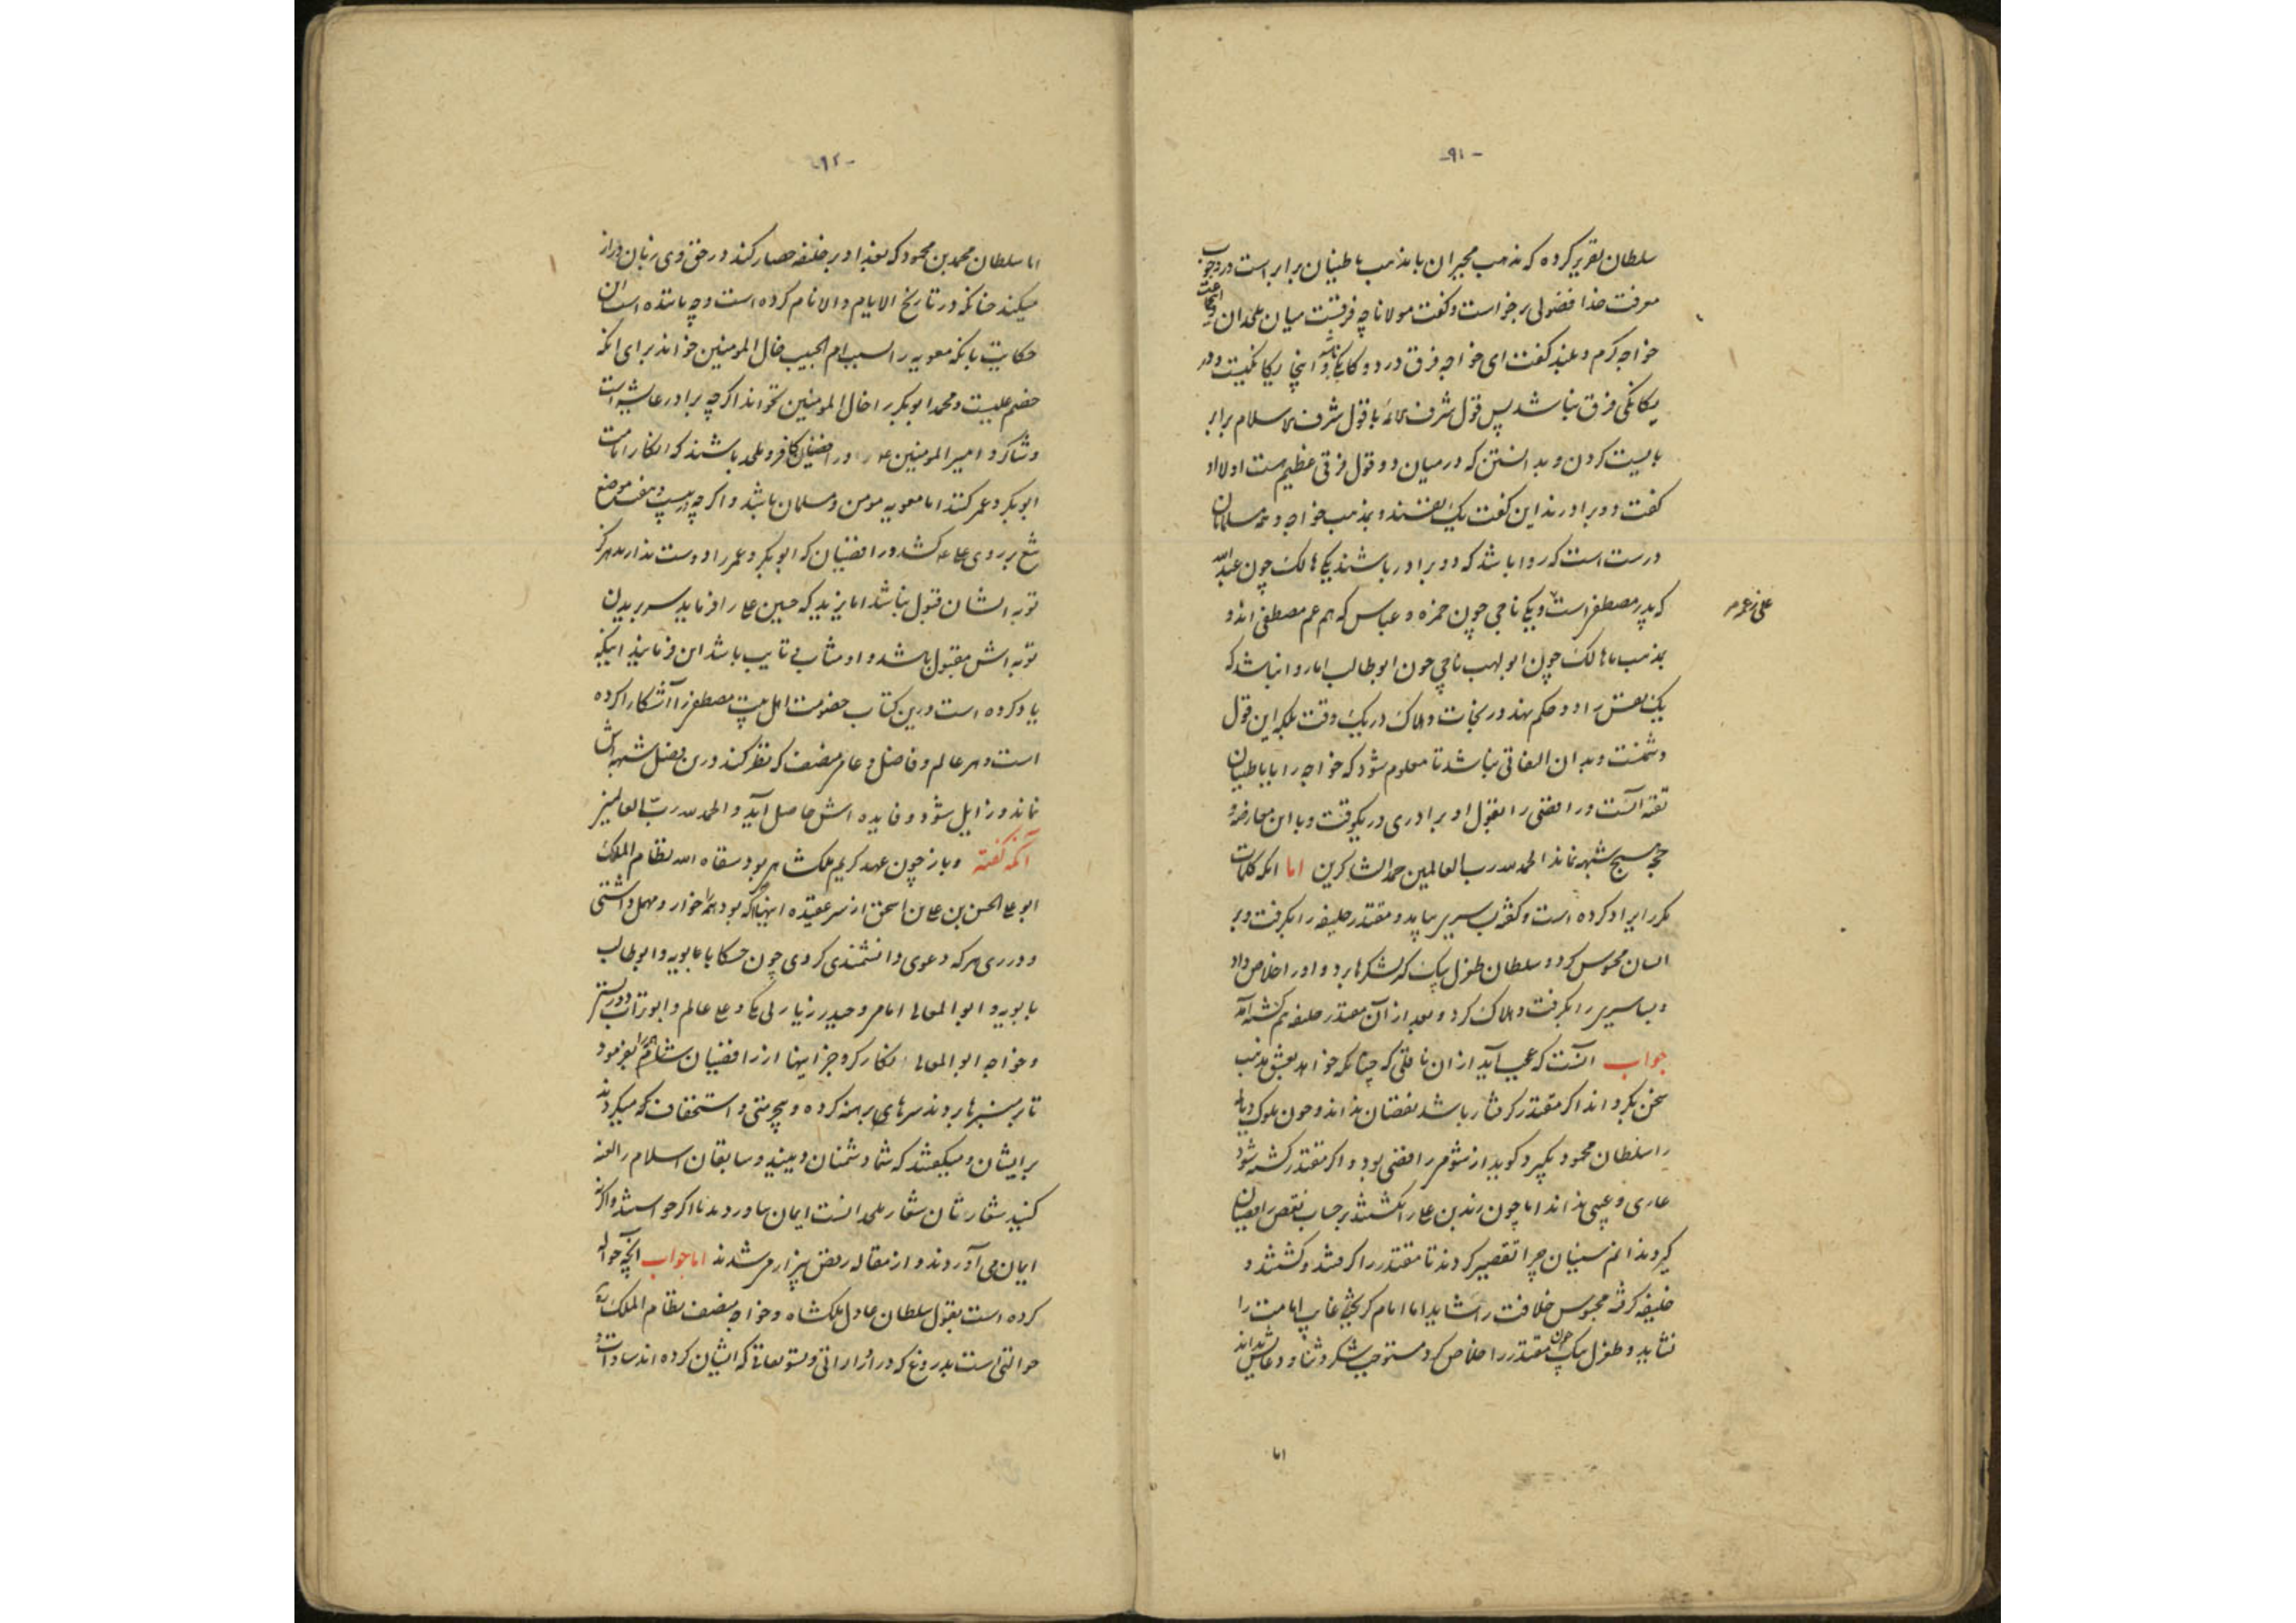 -۹۱-
سلطان تقریر کرده که مذهب مجبران با مذهب باطنیان برابر است در وجوب
معرفت خدا فضولی برخواست و گفت مولانا چه فرقست میان ملحدان و
خواجه گرم و بلند گفت ای خواجه فرق در دوگانگی و اینجا یکانگیست و در
یکانگی فرق نباشد پس قول شرف با قول شرف اسلام برابر
بایست کردن و بدانستن که در میان دو قول فرقی عظیم هست اولا او
گفت دو برادرند این گفت یک نفسند و بمذهب خواجه و همه مسلمانان
درست است که روا باشد که دو برادر باشند یکی هالک چون عبدالله
که پدر مصطفی است و یکی ناجی چون حمزه و عباس که هم عم مصطفی اند و
بمذهب ما هالک چون ابولهب ناجی چون ابوطالب اما روا نباشد که
یک نفس را دو حکم نهند در نجات و هلاک در یک وقت بلکه این قول
دشمنست و بدان التفاتی نباشد تا معلوم شود که خواجه را با باطنیان
تقیه است و رافضی را بقول او برادری در یکوقت و با این معارضه و
حجه هیچ شبهه نماند الحمد لله رب العالمین حمد الشاکرین اما انکه کلمات
مکرر ایراد کرده است و گفته بساسیری بیاید و مقتدر خلیفه را بگرفت و بر
انسان محبوس کرد و سلطان طغرل بیک که لشکرها برد و او را خلاص داد
و بساسیری را بگرفت و هلاک کرد و بعد از آن مقتدر خلیفه هم کشته آمد
جواب انست که عجب آید از ان ناقلی که چنانکه خواهد بعشق مذهب
سخن بگرداند اگر مقتدر گرفتار باشد نقصان نداند و چون ملوک دیالمه
را سلطان محمود بگیرد گوید از شومی رافضی بود و اگر مقتدر کشته شود
عاری و عیبی نداند اما چون زید بن علی را بکشتند بر حساب نقص رافضیان
گیرد ندانم سنیان چرا تقصیر کردند تا مقتدر را گرفتند و کشتند و
خلیفه گرفته محبوس خلافت را شاید اما امام گریخته غایب امامت را
نشاید و طغرل بیک چون مقتدر را خلاص کرد مستوجب شکر و ثنا و دعایش داند
علی زعمهم
اما
-۹۲-
اما سلطان محمد بن محمود که ببغداد بر خلیفه حصار کند در حق وی زبان دراز
میکند چنانکه در تاریخ الایام والانام کرده است و چه ماننده است این
حکایت بانکه معویه را بسبب ام الحبیب خال المومنین خواند برای انکه
خصم علیست و محمد ابوبکر را خال المومنین نخواند اگرچه برادر عایشه است
و شاگرد امیرالمومنین و رافضیان کافر و ملحد باشند که انکار امامت
ابوبکر و عمر کنند اما معویه مومن و مسلمان باشد و اگرچه در بیست و هفت موضع
تیغ بر روی علی کشد و رافضیان که ابوبکر و عمر را دوست ندارند هرگز
توبه ایشان قبول نباشد اما یزید که حسین علی را فرماید سر بریدن
توبه اش مقبول باشد و او مثاب و تایب باشد این و مانند اینکه
یاد کرده است درین کتاب خصومت اهل بیت مصطفی را آشکارا کرده
است و هر عالم و فاضل و عامی منصف که نظر کند درین فصل شبهه اش
نماند و زایل شود و فایده اش حاصل آید والحمد لله رب العالمین
آنکه گفته و باز چون عهد کریم ملکشاهی بود سقاه الله نظام الملک
ابو علی الحسن بن علی بن اسحق از سر عقیده اینها آگه بود همه را خوار و مهمل داشتی
و در ری هر که دعوی دانشمندی کردی چون حسکا بابویه و ابوطالب
بابویه و ابوالمعالی امامی و حیدر زیارتی مکی و علی عالم و ابوتراب دوریستی
و خواجه ابوالمعالی نکارگر و جز اینها از رافضیان شتام را بفرمود
تا بر منبرها بردند سرهای برهنه کرده و بیحرمتی و استخفاف که میکردند
بر ایشان و میگفتند که شما دشمنان دینید و سابقان اسلام را لعنه
کنید شعارتان شعار ملحدانست ایمان بیاورید تا اگر خواستند و اگر نه
ایمان می آوردند و از مقاله رفض بیزار می شدند اما جواب آنچه حواله
کرده است بقول سلطان عادل ملکشاه و خواجه منصف نظام الملک
حوالتی است بدروغ که در ادرارات و تسویغاتی که ایشان کرده اند سادات و